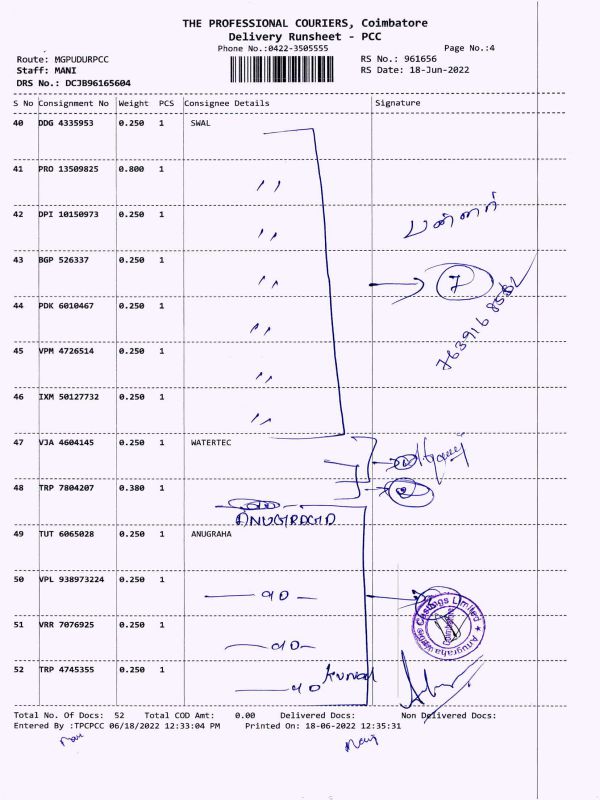 THE PROFESSIONAL COURIERS, Coimbatore
Delivery Runsheet - PCC
Phone No.:0422-3505555 Page No.:4
Route: MGPUDURPCC RS No.: 961656
Staff: MANI RS Date: 18-Jun-2022
DRS No.: DCJB96165604
S No Consignment No Weight PCS Consignee Details Signature
40 DDG 4335953 0.250 1 SWAL
41 PRO 13509825 0.800 1 ,,
42 DPI 10150973 0.250 1 ,,
43 BGP 526337 0.250 1 ,,
7
44 PDK 6010467 0.250 1 ,,
45 VPM 4726514 0.250 1 ,,
46 IXM 50127732 0.250 1 ,,
47 VJA 4604145 0.250 1 WATERTEC
48 TRP 7804207 0.380 1
49 TUT 6065028 0.250 1 ANUGRAHA
50 VPL 938973224 0.250 1
51 VRR 7076925 0.250 1
52 TRP 4745355 0.250 1
Total No. Of Docs: 52 Total COD Amt: 0.00 Delivered Docs: Non Delivered Docs:
Entered By :TPCPCC 06/18/2022 12:33:04 PM Printed On: 18-06-2022 12:35:31